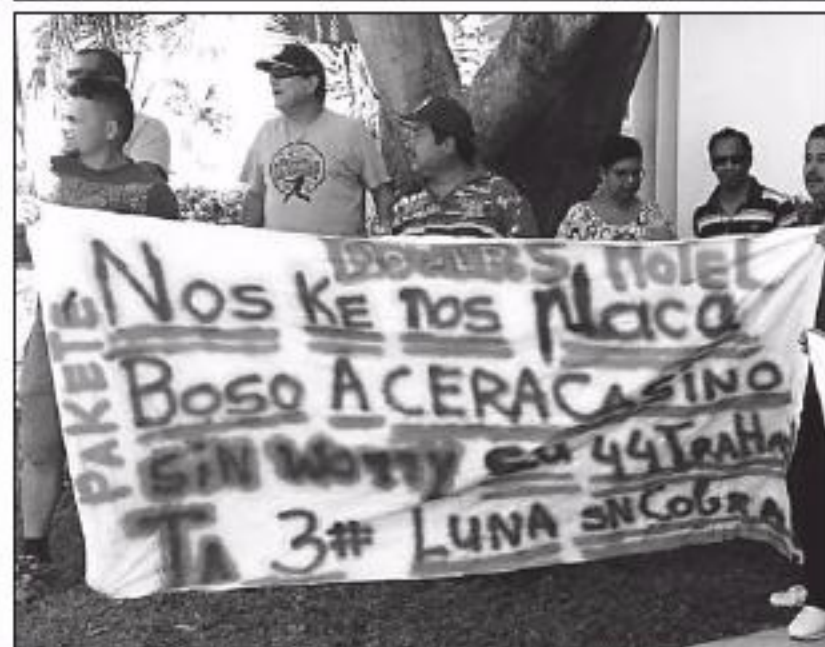 PAKETE
HOTEL
NOS KE NOS PLACA
BOSO A CERA CASINO
SiN WORRY cu 44 TRAHA
TA 3# LUNA SN COBRA